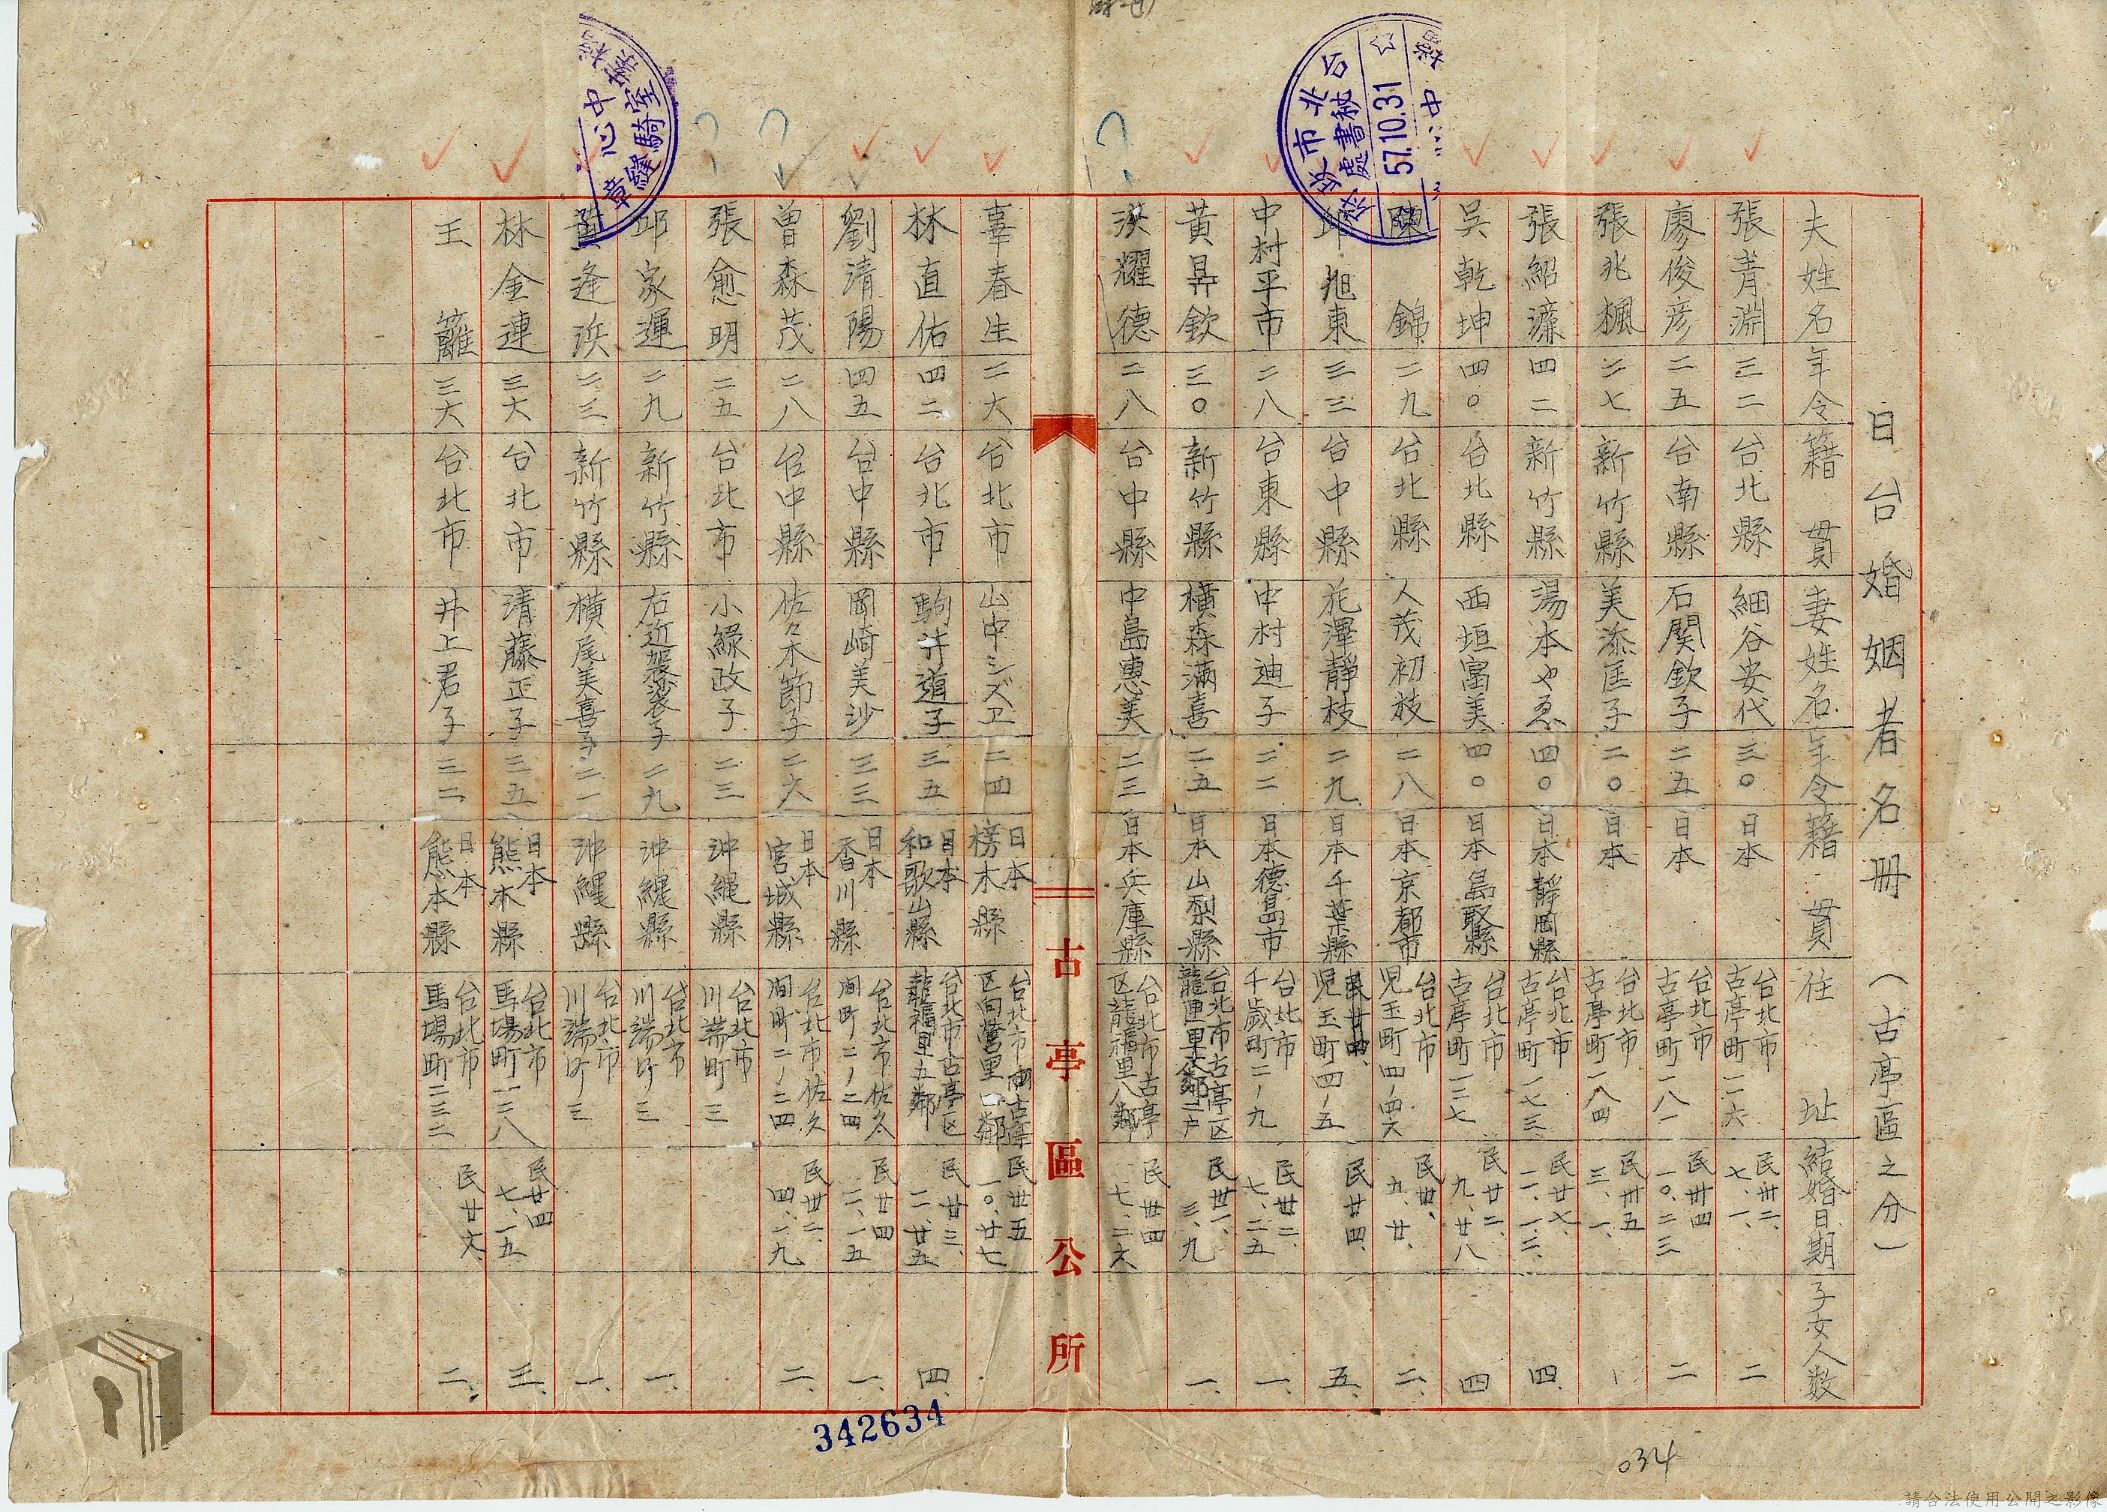 日台婚姻者名冊（古亭區之分）
夫姓名 年令 籍貫 妻姓名 年令 籍貫 住址 結婚日期 子女人数
張青淵 三二 台北縣 細谷安代 三〇 日本 台北市古亭町一二六 民卅二、七、一、 二
廖俊彦 二五 台南縣 石関欽子 二五 日本 台北市古亭町一八一 民卅四 一〇、二三 二
張兆楓 二七 新竹縣 美添匡子 二〇 日本 台北市古亭町一八四 民卅五 三、一、
張紹濂 四二 新竹縣 湯本やゑ 四〇 日本靜岡縣 台北市古亭町一七三 民廿七、一一、一三、 四、
吳乾坤 四〇 台北縣 西垣富美 四〇 日本島取縣 台北市古亭町一三七 民廿二、九、廿八 四
陳錦 二九 台北縣 人茂初枝 二八 日本京都市 台北市児玉町四ノ四六 民卅、九、廿、 二、
邱旭東 三三 台中縣 花澤靜枝 二九 日本千葉縣 児玉町四ノ五 民廿四、 五、
中村平市 二八 台東縣 中村迪子 二二 日本德島市 台北市千歲町二ノ九 民卅二、七、二五 一、
黃昇欽 三〇 新竹縣 橫森滿喜 二五 日本山梨縣 台北市古亭区龍匣里六鄰二户 民卅一、三、九 一、
洪耀德 二八 台中縣 中島惠美 二三 日本兵庫縣 台北市古亭区龍福里八鄰 民卅四 七、二六
古亭區公所
辜春生 二六 台北市 山中シズヱ 二四 日本榜木縣 台北市古亭区向營里一鄰 民卅五 一〇、廿七
林直佑 四二 台北市 駒井道子 三五 日本和歌山縣 台北市古亭区龍福里五鄰 民廿三、二、廿五 四、
劉清陽 四五 台中縣 岡崎美沙 三三 日本香川縣 台北市佐久間町二ノ二四 民廿四 二、一五 一、
曾森茂 二八 台中縣 佐々木節子 二六 日本宮城縣 台北市佐久間町二ノ三四 民卅二、四、一九 二、
張愈明 二五 台北市 小緑政子 二三 沖縄縣 台北市川端町三
邱家運 二九 新竹縣 右近袈裟子 二九 沖縄縣 台北市川端町三 一、
黃逢浜 二三 新竹縣 橫尾美喜子 二一 沖縄縣 台北市川端町三 一、
林金連 三六 台北市 清藤正子 三五 日本熊本縣 台北市馬場町一三八 民廿四 七、一五 三、
王籬 三六 台北市 井上君子 三二 日本熊本縣 台北市馬場町二三二 民廿六、 二、
台北市政
秘書處
57.10.31
中心
騎縫章
342634
034
請合法使用公開之影像